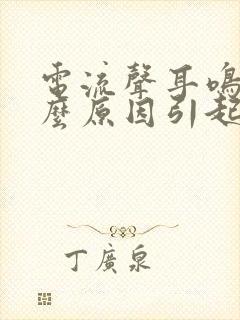 電流聲耳鳴
麼原因引起
丁廣泉